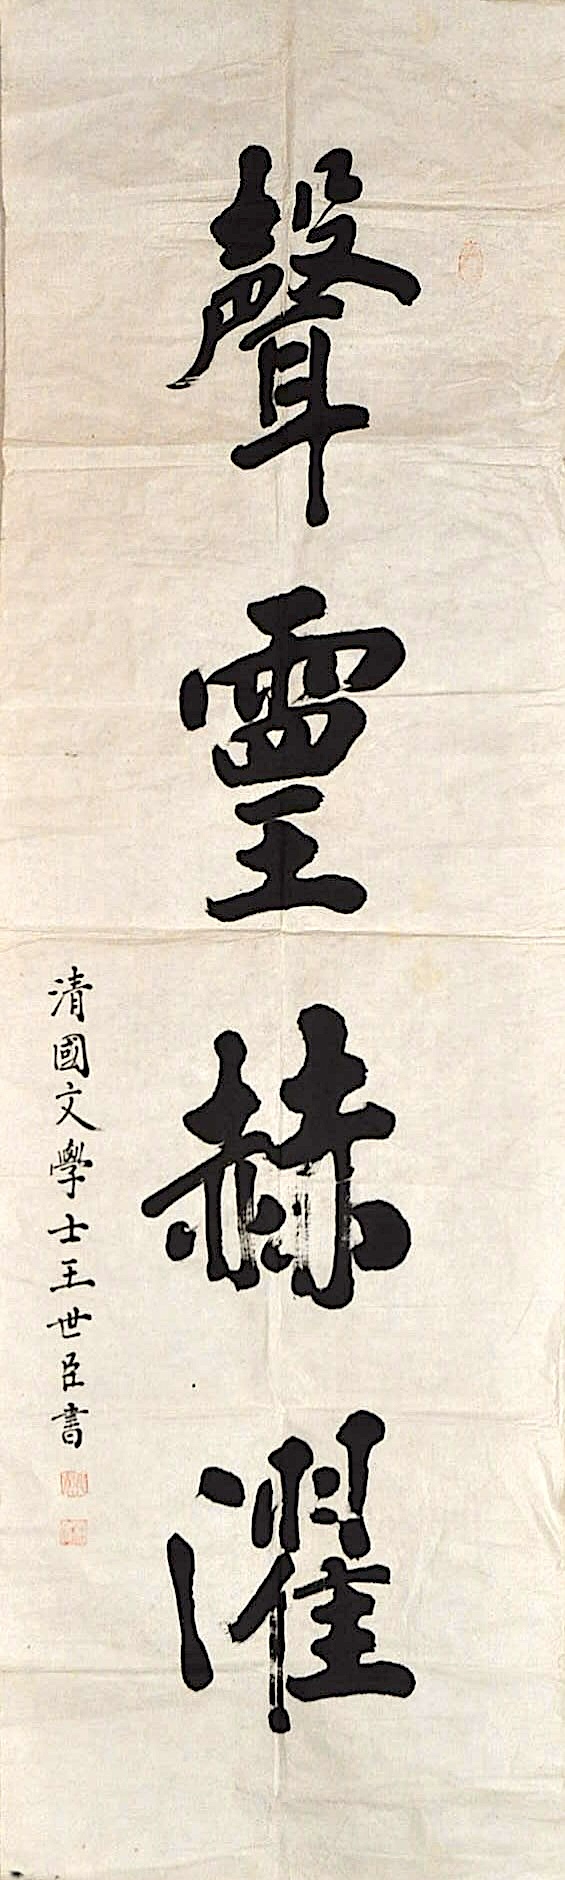 聲靈赫濯
清國文學士王世臣書